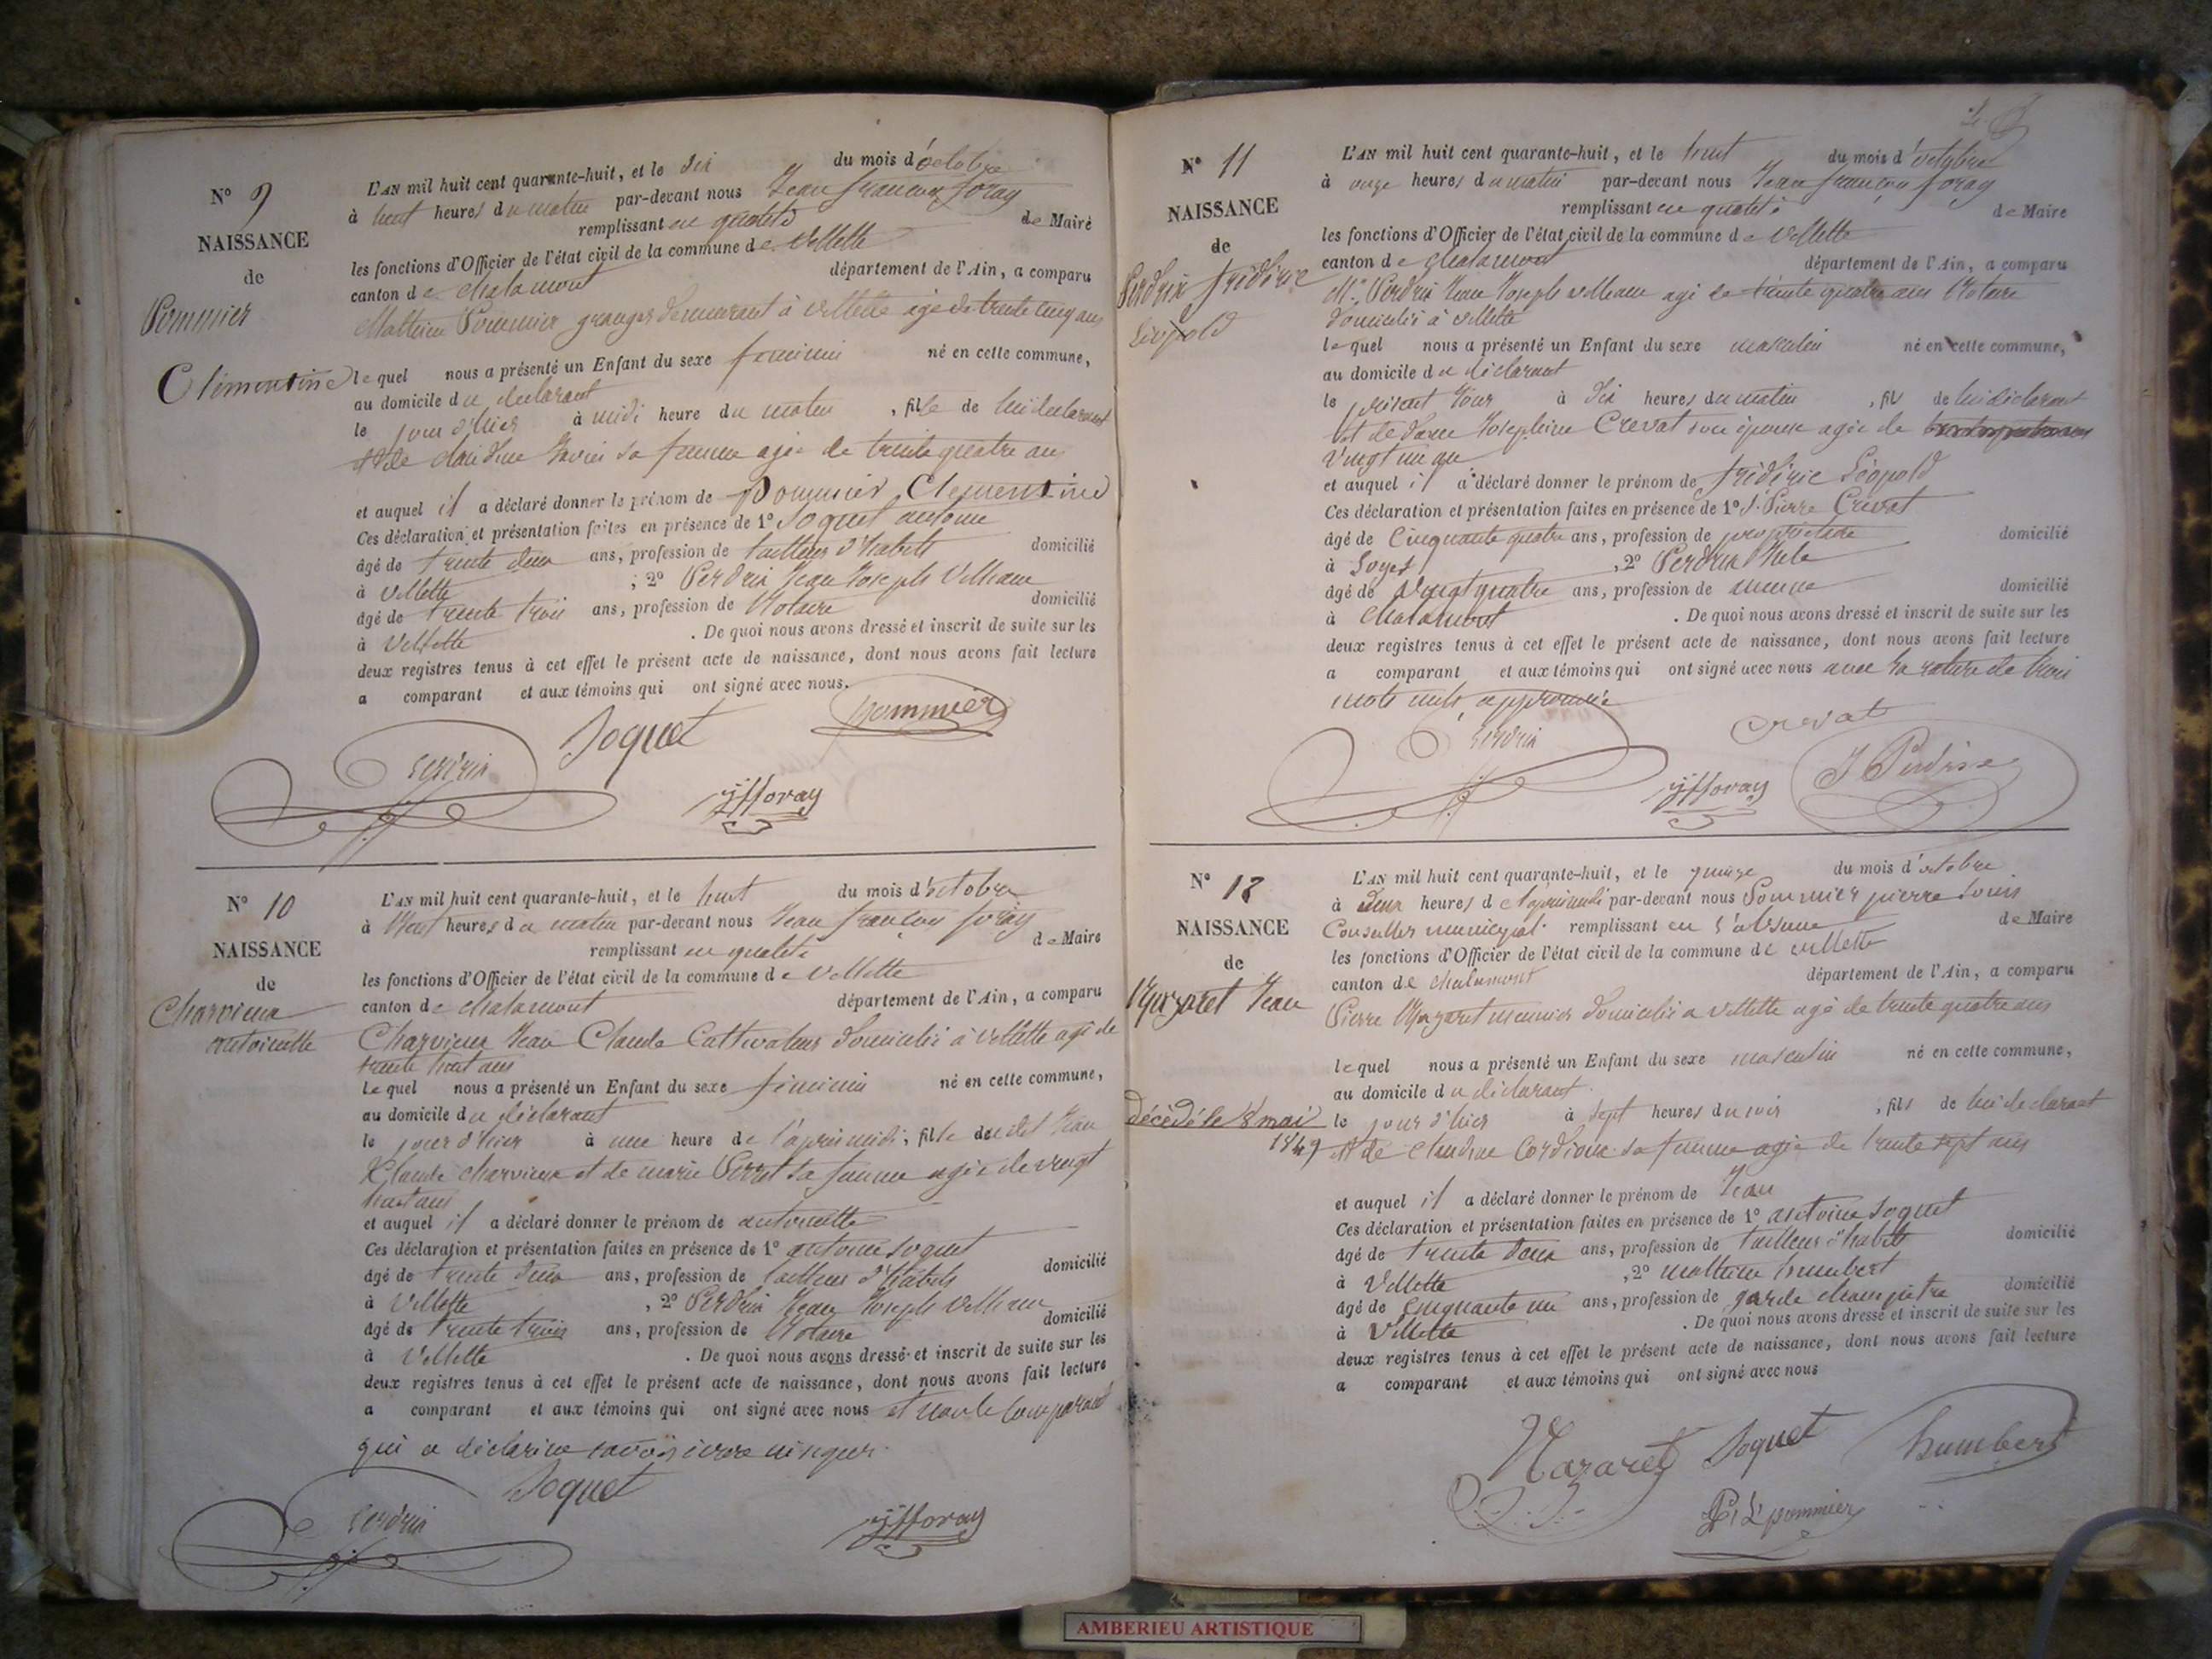 N° 9
NAISSANCE
de
Pommier
Clémentine
L'AN mil huit cent quarante-huit, et le six du mois d'octobre
à huit heures du matin par-devant nous Jean françois foray
remplissant en qualité de Maire
les fonctions d'Officier de l'état civil de la commune de Villette
canton de chalamont département de l'Ain, a comparu
Mathieu Pommier granger demeurant à villette agé de trente cinq ans
lequel nous a présenté un Enfant du sexe feminin né en cette commune,
au domicile du declarant
le jour d'hier à midi heure du matin, fille de lui declarant
et de claudine sa femme agée de trente quatre ans
et auquel il a déclaré donner le prénom de pommier Clementine
Ces déclaration et présentation faites en présence de 1° Joguet antoine
âgé de trente deux ans, profession de tailleur d'habits domicilié
à villette ; 2° Perdrix Jean Joseph Villiam
âgé de trente trois ans, profession de Notaire domicilié
à Villette . De quoi nous avons dressé et inscrit de suite sur les
deux registres tenus à cet effet le présent acte de naissance, dont nous avons fait lecture
a comparant et aux témoins qui ont signé avec nous.
pommier
Joguet
Perdrix
jfforay
N° 10
NAISSANCE
de
Charvieux
antoinette
L'AN mil huit cent quarante-huit, et le huit du mois d'octobre
à heures du matin par-devant nous Jean françois foray
remplissant en qualité de Maire
les fonctions d'Officier de l'état civil de la commune de Villette
canton de chalamont département de l'Ain, a comparu
Charvieux Jean Claude Cultivateur domicilié à Villette agé de
trente huit ans
Lequel nous a présenté un Enfant du sexe féminin né en cette commune,
au domicile du déclarant
le jour d'hier à une heure de l'après midi, fille dudit Jean
Klaude charvieux et de marie Perret sa femme agée de vingt
huit ans
et auquel il a déclaré donner le prénom de antoinette
Ces déclaration et présentation faites en présence de 1° antoine Joguet
âgé de trente deux ans, profession de tailleur d'habits domicilié
à Villette , 2° Perdrix Jean Joseph Villiam
âgé de trente trois ans, profession de Notaire domicilié
à Villette . De quoi nous avons dressé et inscrit de suite sur les
deux registres tenus à cet effet le présent acte de naissance, dont nous avons fait lecture
a comparant et aux témoins qui ont signé avec nous et non le comparant
qui a déclaré ne savoir
Joguet
Perdrix
jfforay
N° 11
NAISSANCE
de
Perdrix frédéric
Léopold
L'AN mil huit cent quarante-huit, et le huit du mois d'octobre
à onze heures du matin par-devant nous Jean françois foray
remplissant en qualité de Maire
les fonctions d'Officier de l'état civil de la commune de Villette
canton de chalamont département de l'Ain, a comparu
Mr. Perdrix Jean Joseph villiam agé de trente quatre ans Notaire
domicilié à Villette
lequel nous a présenté un Enfant du sexe masculin né en cette commune,
au domicile du déclarant
le présent jour à dix heures du matin, fils de lui déclarant
et de dame Joséphine Crevat son épouse agée de
vingt un an
et auquel il a déclaré donner le prénom de frédéric Léopold
Ces déclaration et présentation faites en présence de 1° Pierre Crevat
âgé de Cinquante quatre ans, profession de propriétaire domicilié
à Loyes , 2° Perdrix
âgé de Vingt quatre ans, profession de domicilié
à Chalamont . De quoi nous avons dressé et inscrit de suite sur les
deux registres tenus à cet effet le présent acte de naissance, dont nous avons fait lecture
a comparant et aux témoins qui ont signé avec nous avec la rature de trois
mots nuls approuvée
Crevat
Perdrix
jfforay
J Perdrix
N° 12
NAISSANCE
de
Nazaret Jean
décédé le 8 mai
1849
L'AN mil huit cent quarante-huit, et le quinze du mois d'octobre
à deux heures d après midi par-devant nous Pommier pierre Louis
Conseiller municipal remplissant en l'absence de Maire
les fonctions d'Officier de l'état civil de la commune de villette
canton de chalamont département de l'Ain, a comparu
Pierre Nazaret meunier domicilié a Villette agé de trente quatre ans
lequel nous a présenté un Enfant du sexe masculin né en cette commune,
au domicile du déclarant
le jour d'hier à sept heures du soir, fils de lui declarant
et de claudine Cordioux sa femme agée de trente sept ans
et auquel il a déclaré donner le prénom de Jean
Ces déclaration et présentation faites en présence de 1° antoine Joguet
âgé de trente deux ans, profession de tailleur d'habits domicilié
à Villette , 2° mathieu humbert
âgé de cinquante un ans, profession de garde champêtre domicilié
à Villette . De quoi nous avons dressé et inscrit de suite sur les
deux registres tenus à cet effet le présent acte de naissance, dont nous avons fait lecture
a comparant et aux témoins qui ont signé avec nous
Nazaret Joguet humbert
P. L. pommier
AMBERIEU ARTISTIQUE